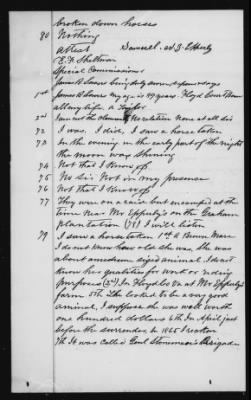 broken down horses
80 Nothing
attest Samuel
E.F. Shelman
Special Commissioner
James B. Sowers being duly sworn deposes & says
1st James B. Sowers my age is 39 years. Floyd Court House
all my life. a Tailor
2nd I am not the claimant No relation None at all sir
72 I was. I did, I saw a horse taken
73 In the evening in the early part of the night
the moon was shining
74 Not that I know of
75 No Sir Not in my presence
76 Not that I know of
77 They were on a raid but encamped at the
time near Mr Epperly's on the Graham
plantation (78) I will listen
79 I saw a horse taken 1st a Brown Mare
I do not know how old she was. She was
about a medium sized animal. I do not
know her qualities for work or riding
purposes (3rd) In Floyd Co Va at Mr Epperly's
farm 5th She looked to be a very good
animal, I suppose she was well worth
one hundred dollars 6th In April just
before the surrender in 1865 I reckon
7th It was called Genl Stoneman's Brigade